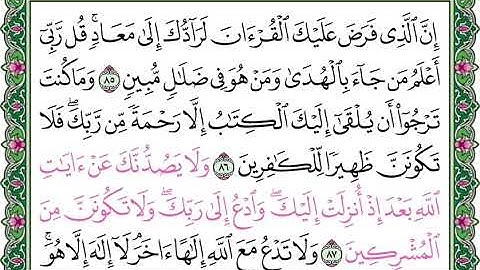 إِنَّ ٱلَّذِى فَرَضَ عَلَيْكَ ٱلْقُرْءَانَ لَرَآدُّكَ إِلَىٰ مَعَادٍۚ قُل رَّبِّىٓ
أَعْلَمُ مَن جَآءَ بِٱلْهُدَىٰ وَمَنْ هُوَ فِى ضَلَـٰلٍ مُّبِينٍ ٨٥ وَمَا كُنتَ
تَرْجُوٓا۟ أَن يُلْقَىٰٓ إِلَيْكَ ٱلْكِتَـٰبُ إِلَّا رَحْمَةً مِّن رَّبِّكَۖ فَلَا
تَكُونَنَّ ظَهِيرًا لِّلْكَـٰفِرِينَ ٨٦ وَلَا يَصُدُّنَّكَ عَنْ ءَايَـٰتِ
ٱللَّهِ بَعْدَ إِذْ أُنزِلَتْ إِلَيْكَۖ وَٱدْعُ إِلَىٰ رَبِّكَۖ وَلَا تَكُونَنَّ مِنَ
ٱلْمُشْرِكِينَ ٨٧ وَلَا تَدْعُ مَعَ ٱللَّهِ إِلَـٰهًا ءَاخَرَۘ لَآ إِلَـٰهَ إِلَّا هُوَۚ